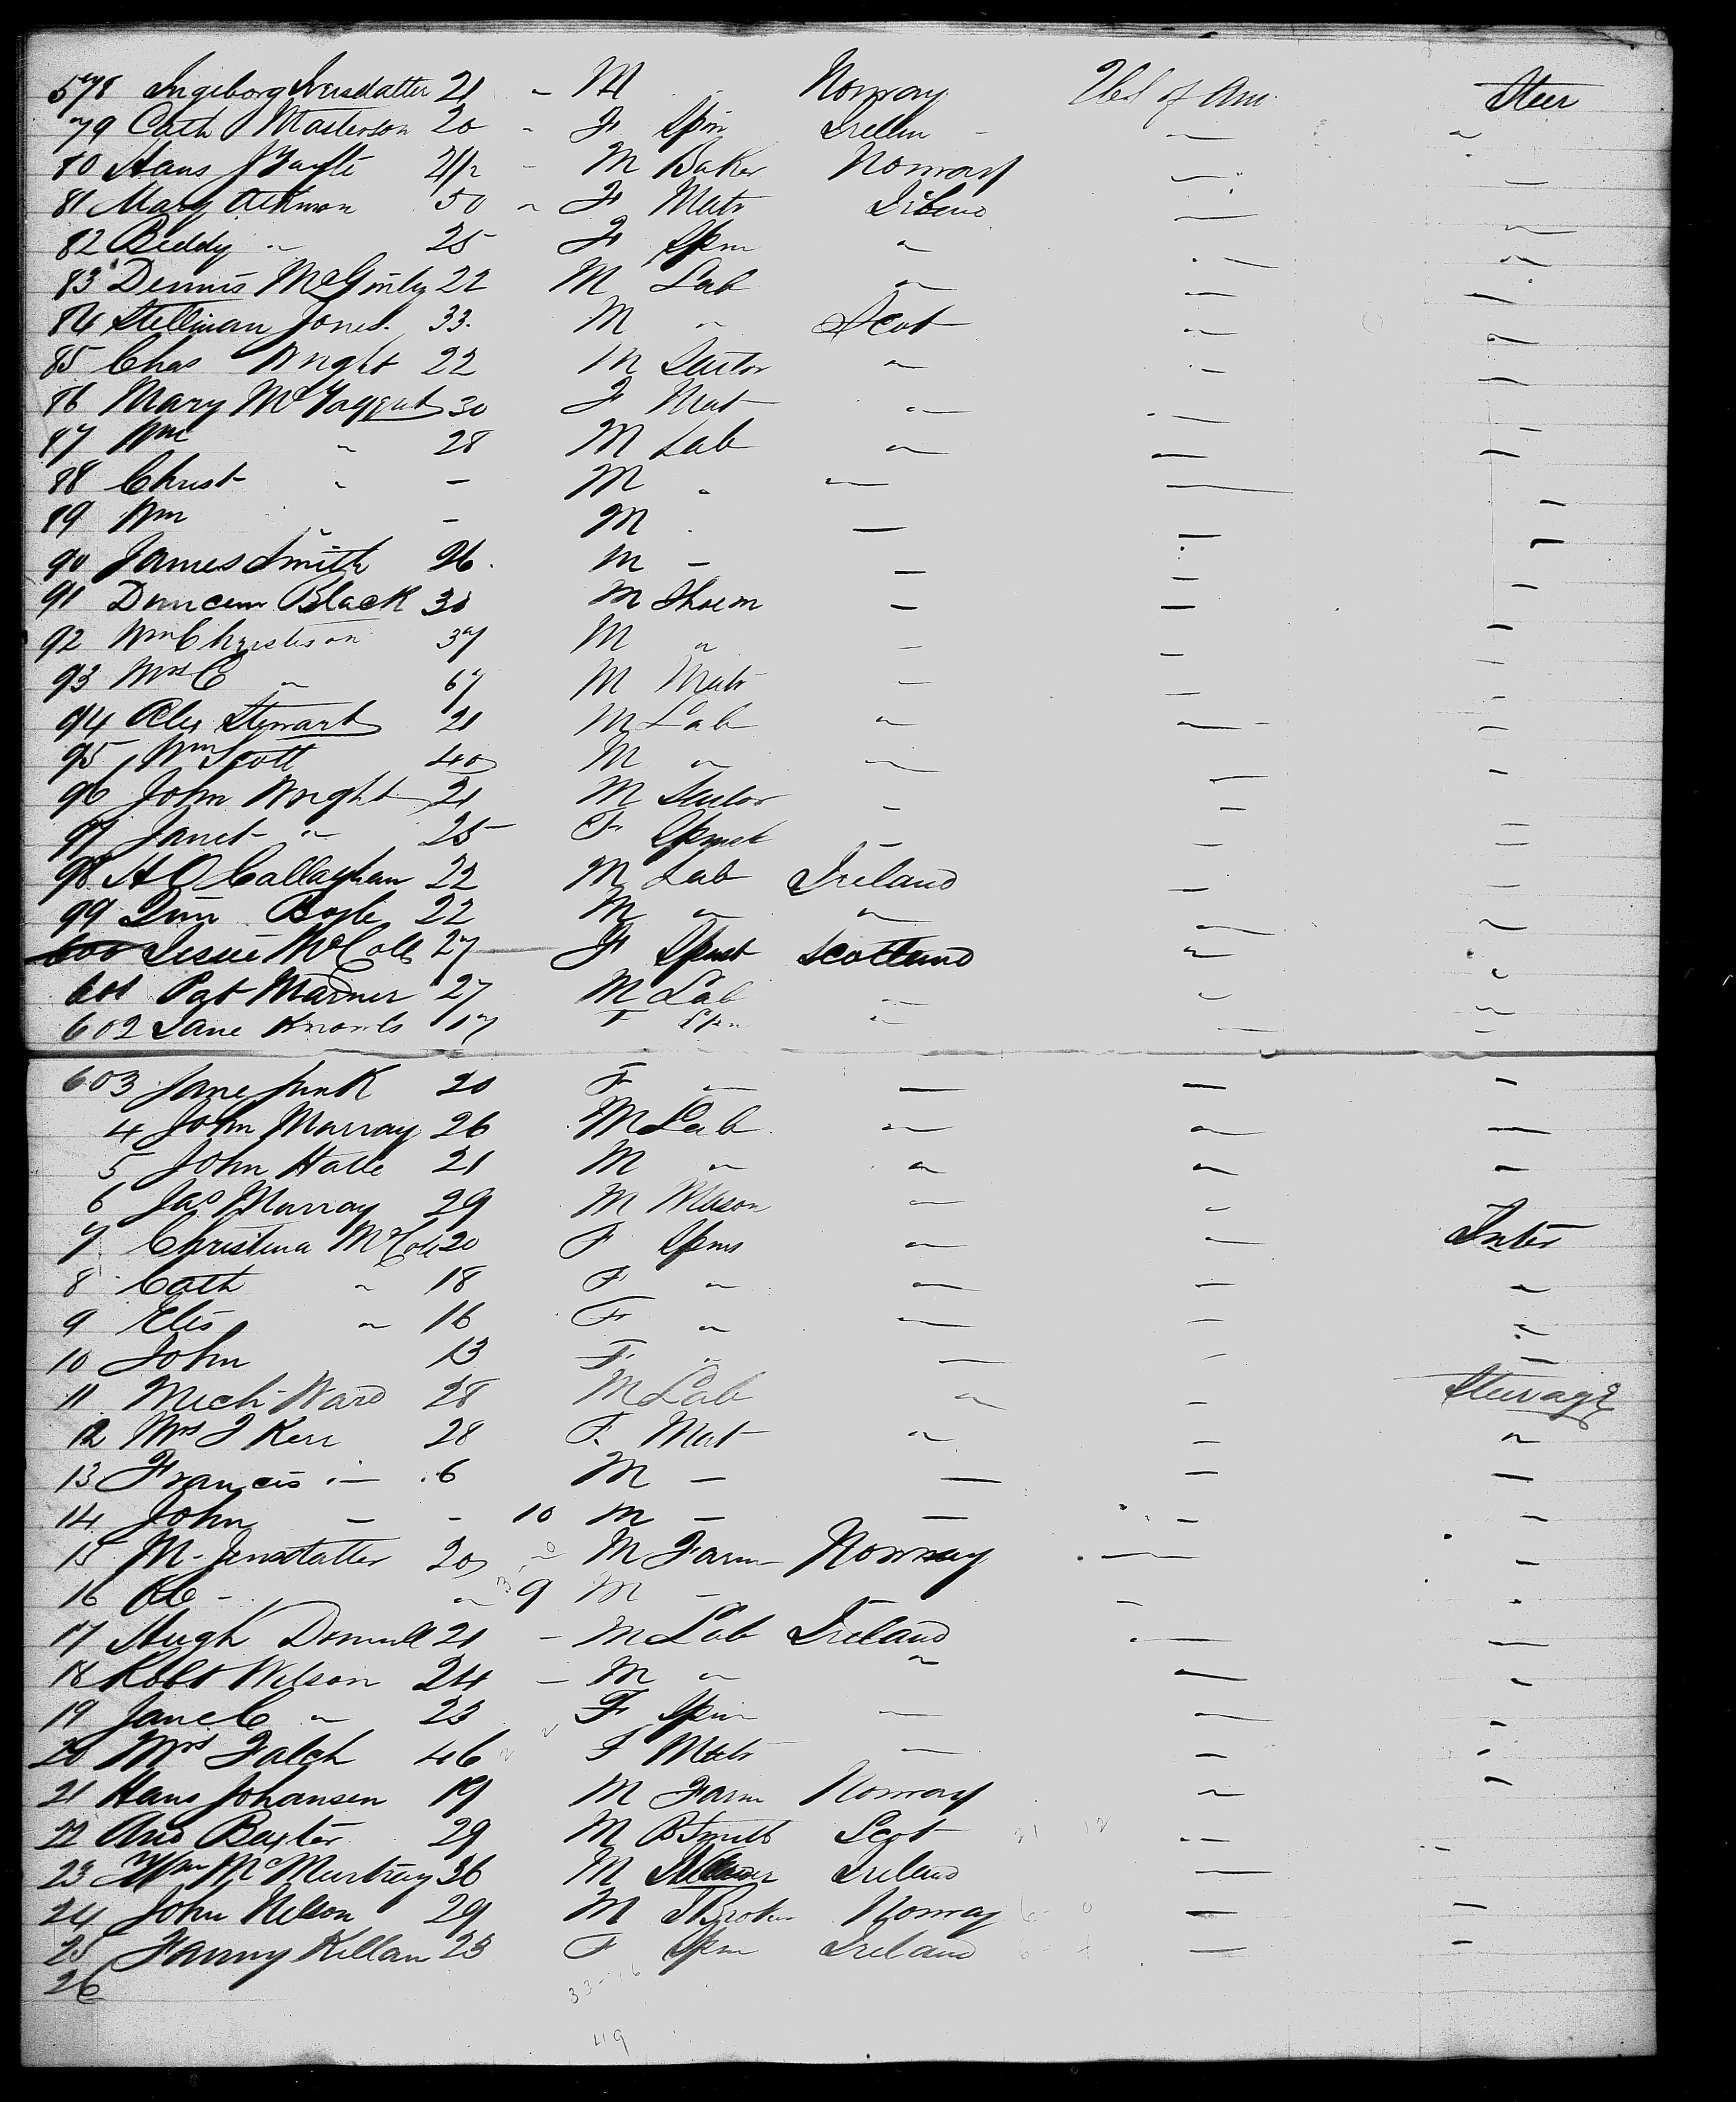 578 Ingeborg Iversdatter 21 - M Norway US of Am Steer
79 Cath Masterson 20 " F Spin Irelan - — "
80 Hans - M Baker Norway — —
81 Mary 50 " F Matr Ireland — —
82 Biddy " 25 F Spin " — "
83 Dennis McGinley 22 M Lab " — —
84 Stellman Jones. 33. M " Scot " "
85 Chas Wright 22 M Tailor " — —
86 Mary McTaggart 30 F Mat " — —
87 Wm " 28 M Lab " — —
88 Christ " - M " — — —
89 Wm " - M — — —
90 James Smith 26. M — — — —
91 Duncan Black 30 M Shoem — — —
92 Wm Christison 37 M " — — —
93 Mrs C " 67 M Matr — — —
94 Alex Stewart 21 M Lab " — —
95 Wm Scott 40 M " — — —
96 John Wright 21 M Tailor — — —
97 Janet " 25 F Spinst — — —
98 H O Callaghan 22 M Lab Ireland — —
99 Boyle 22 M " " — "
600 Jessie McColl 27 F Spinst Scotland " "
601 Pat 27 M Lab — " "
602 Jane Knowls 17 F Spin " — —
603 Jane Junk 20 F — — — —
4 John Murray 26 M Lab " " —
5 John Halle 21 M " " " "
6 Jas Murray 29 M Mason — "
7 Christina McColl 20 F Spins " — Inter
8 Cath " 18 F " — — "
9 Elis " 16 F " — — "
10 John 13 F " — — —
11 Mich Ward 28 M Lab " — Steerage
12 Mrs J Kerr 28 F. Mat " — "
13 Francis " 6 M — — — —
14 John — - 10 M — — — —
15 M. Jensdatter 20 M Farm Norway — —
16 Ole - " 9 M — — -
17 Hugh Donnell 21 - M Lab Ireland — —
18 Robt Wilson 24 - M " " — "
19 Jane C " 23 F Spin — — —
20 Mrs Falch 46 F Matr — — "
21 Hans Johansen 19 M Farm Norway " "
22 And Baxter 29 M BSmith Scot — —
23 Wm McMurtray 36 M Ireland —
24 John Nelson 29 M Norway — —
25 Fanny Killan 23 F Spin Ireland — —
26
33-16
49